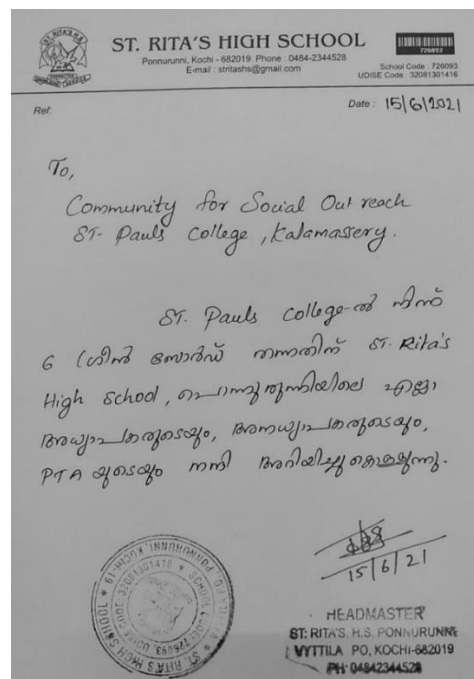 ST. RITA'S HIGH SCHOOL
Ponnurunni, Kochi - 682019. Phone : 0484-2344528
E-mail : stritashs@gmail.com
726093
School Code : 726093
UDISE Code : 32081301416
Ref:
Date : 15/6/2021
To,
Community for Social Out reach
ST- Pauls College, Kalamassery.
ST. Pauls College-ൽ നിന്ന്
6 ഗ്രീൻ ബോർഡ് തന്നതിന് ST. Rita's
High School, പൊന്നുരുന്നിയിലെ എല്ലാ
അധ്യാപകരുടെയും, അനധ്യാപകരുടെയും,
PTA യുടെയും നന്ദി അറിയിച്ചുകൊള്ളുന്നു.
15/6/21
HEADMASTER
ST: RITA'S. H.S. PONNURUNNI
VYTTILA PO, KOCHI-682019
PH: 04842344528
ST. RITA'S HIGH SCHOOL * PONNURUNNI, KOCHI-19
SCHOOL CODE-726093, UDISE CODE-32081301416